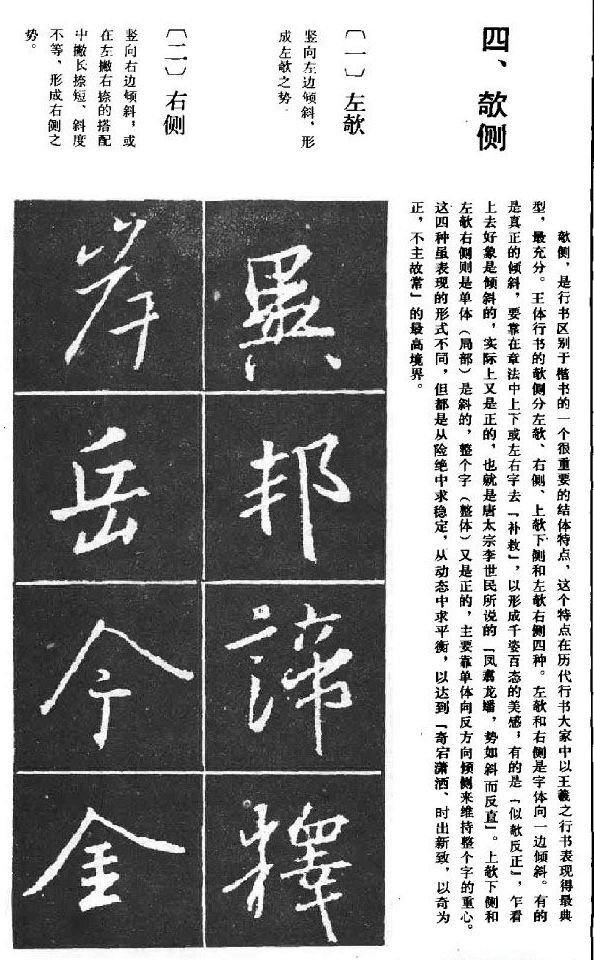 四、欹侧
欹侧，是行书区别于楷书的一个很重要的结体特点，这个特点在历代行书大家中以王羲之行书表现得最典
型，最充分。王体行书的欹侧分左欹、右侧、上欹下侧和左欹右侧四种。左欹和右侧是字体向一边倾斜。有的
是真正的倾斜，要靠在章法中上下或左右字去「补救」，以形成千姿百态的美感；有的是「似欹反正」，乍看
上去好象是倾斜的，实际上又是正的，也就是唐太宗李世民所说的「凤翥龙蟠，势如斜而反直」。上欹下侧和
左欹右侧则是单体（局部）是斜的，整个字（整体）又是正的，主要靠单体向反方向倾侧来维持整个字的重心。
这四种虽表现的形式不同，但都是从险绝中求稳定，从动态中求平衡，以达到「奇宕潇洒、时出新致，以奇为
正，不主故常」的最高境界。
〔一〕左欹
竖向左边倾斜，形
成左欹之势。
〔二〕右侧
竖向右边倾斜，或
在左撇右捺的搭配
中撇长捺短、斜度
不等，形成右侧之
势。
異
邦
諦
釋
岸
岳
今
金